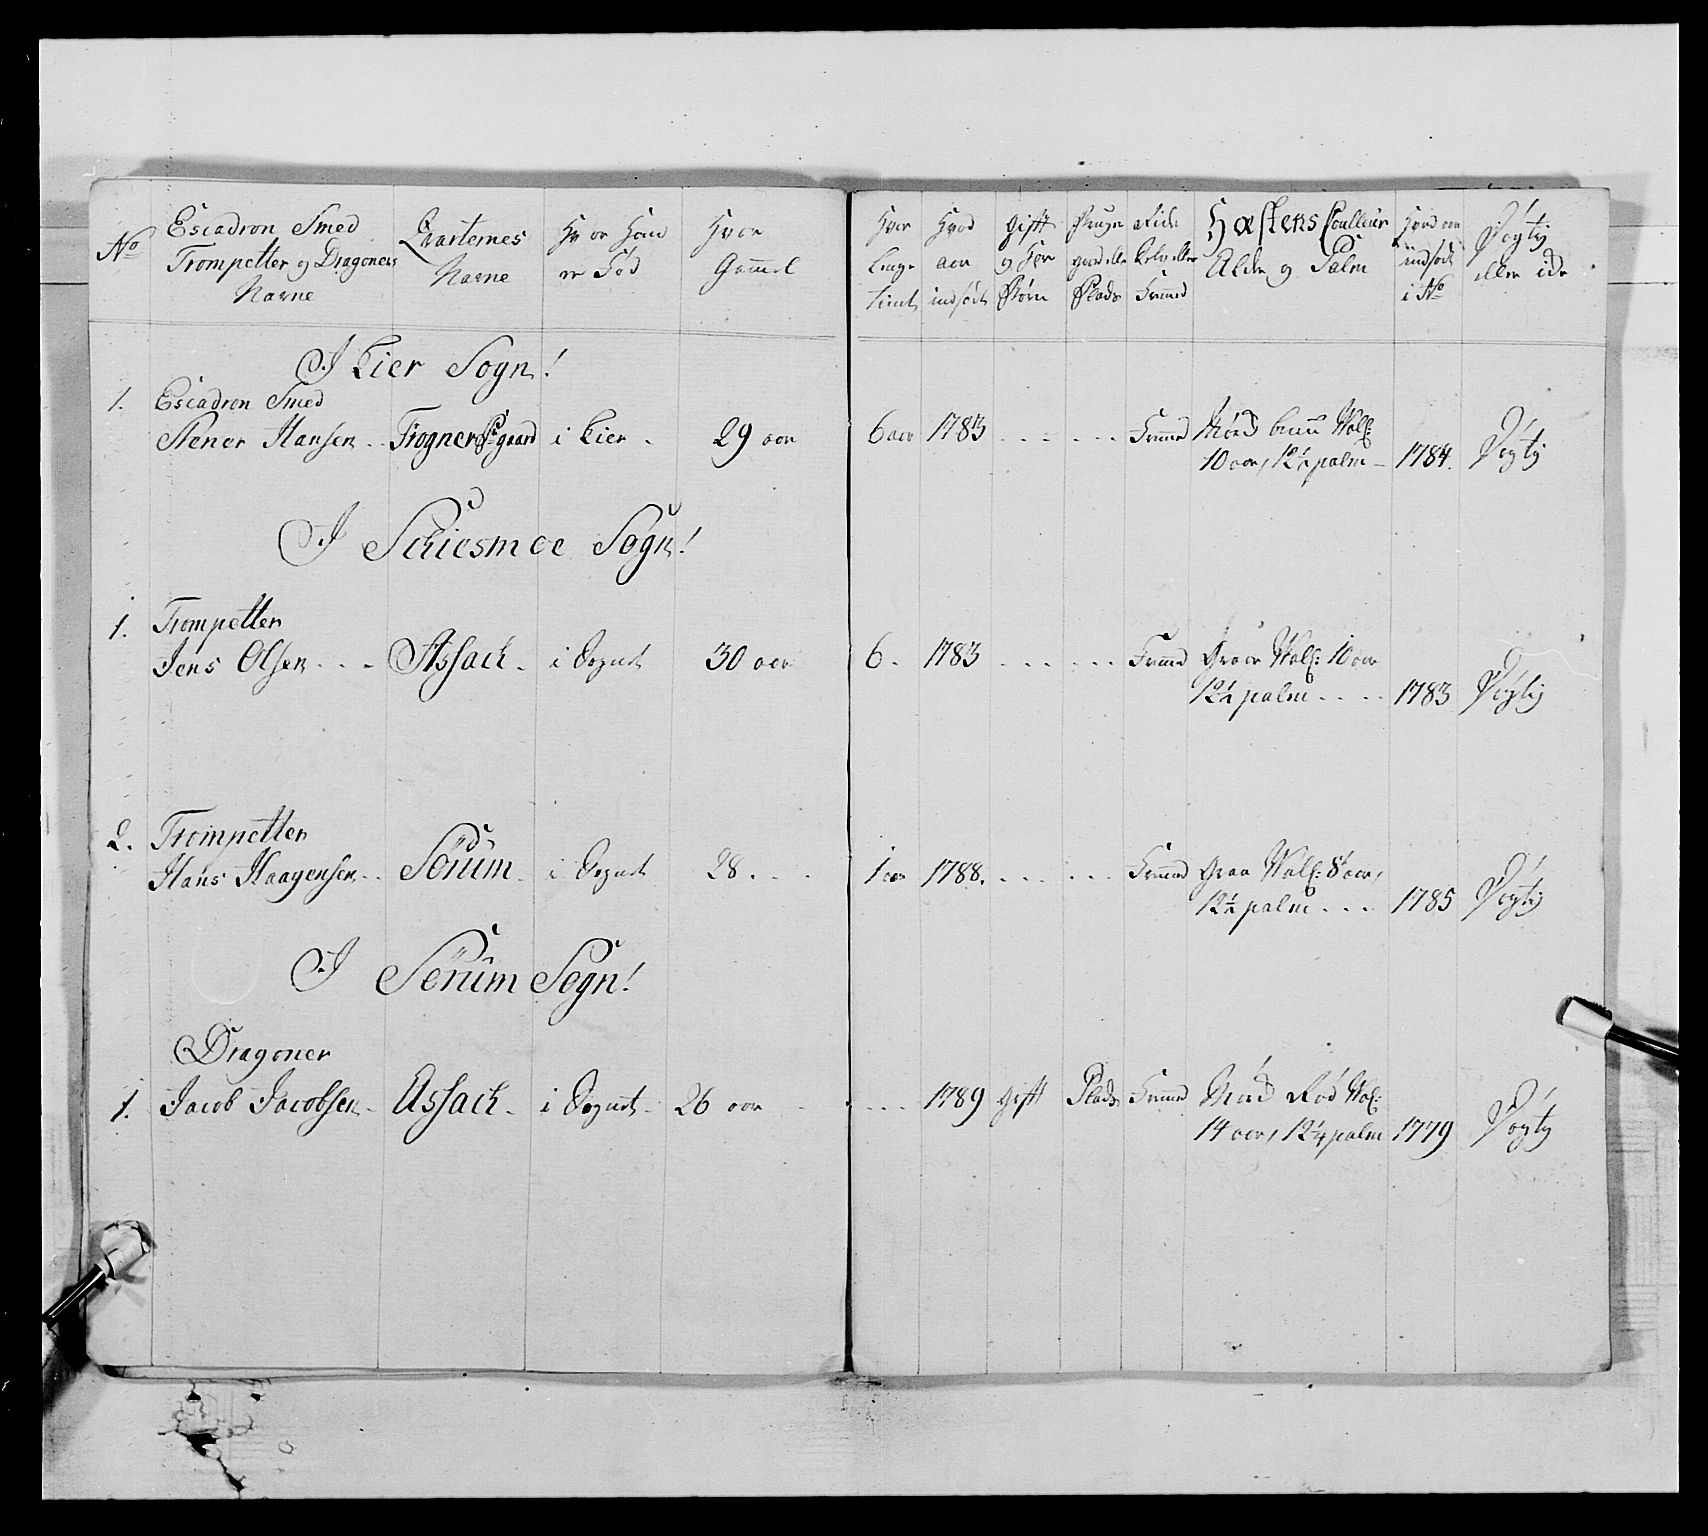 No
Escadron Smed
Trompetter og Dragoners
Navne
Qvarternes
Navne
Hvor Hand
er Fød
Hvor
Gammel
Hvor
Lenge
tient
Hvad
aar
indsødt
Gift
og Fer
Børn
Bruger
gaard eller
Plads
Ride
Eller
Fremmed
Hæstens Coulleur
Alder og Palm
Hvad aar
indsødt
i No
Døgtig
eller icke
I Lier Sogn!
1. Escadron Smed
Stener Hansen - Frogner Pr: gaard i Lier - 29 aar 6 aar 1783 Fremmed Mørd brun Wall:
10 aar, 12½ palm - 1784. Døgtig
I Schiesmoe Sogn!
1. Trompetter
Jens Olsen - - - Assack - i Sognet 30 aar 6 - 1783 Fremmed Graa Wall: 10 aar
12½ palm - - - 1783 Døgtig
2. Trompetter
Hans Haagensen - Sörum - i Sognet 28 - - 1 aar 1788. Fremmed Graa Wall: 8 aar,
12½ palm - - - 1785 Døgtig
I Sörum Sogn!
Dragoner
1. Jacob Jacobsen - Assack - i Sognet - 26 aar 1789 Gift Plads Fremmed Mörd Rød Wal:
14 aar, 12¼ palm 1779 Døgtig